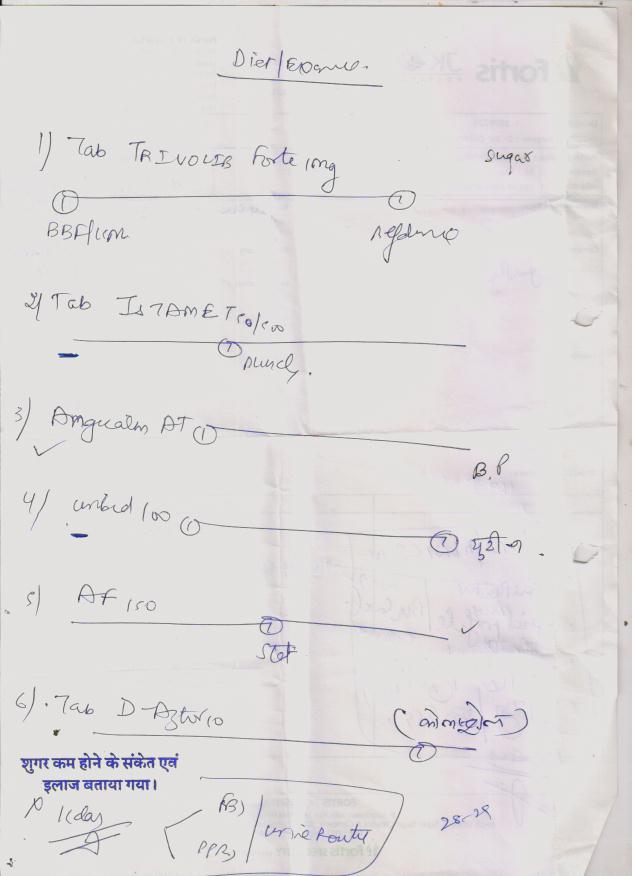 Diet/Exercise.
1) Tab TRIVOLIB Forte 1mg
sugar
1 1
BBF/
2) Tab ISTAMET 50/500
1
Lunch.
3) Amgualin AT 1
B.P
4) unibid 100 1
1 यूरीन.
5) AF 150
1
Stat
6). Tab D-Aztor 10
(कोलस्ट्रोल)
1
शुगर कम होने के संकेत एवं
इलाज बताया गया।
FBS
PPBS
Urine Routine
28-29